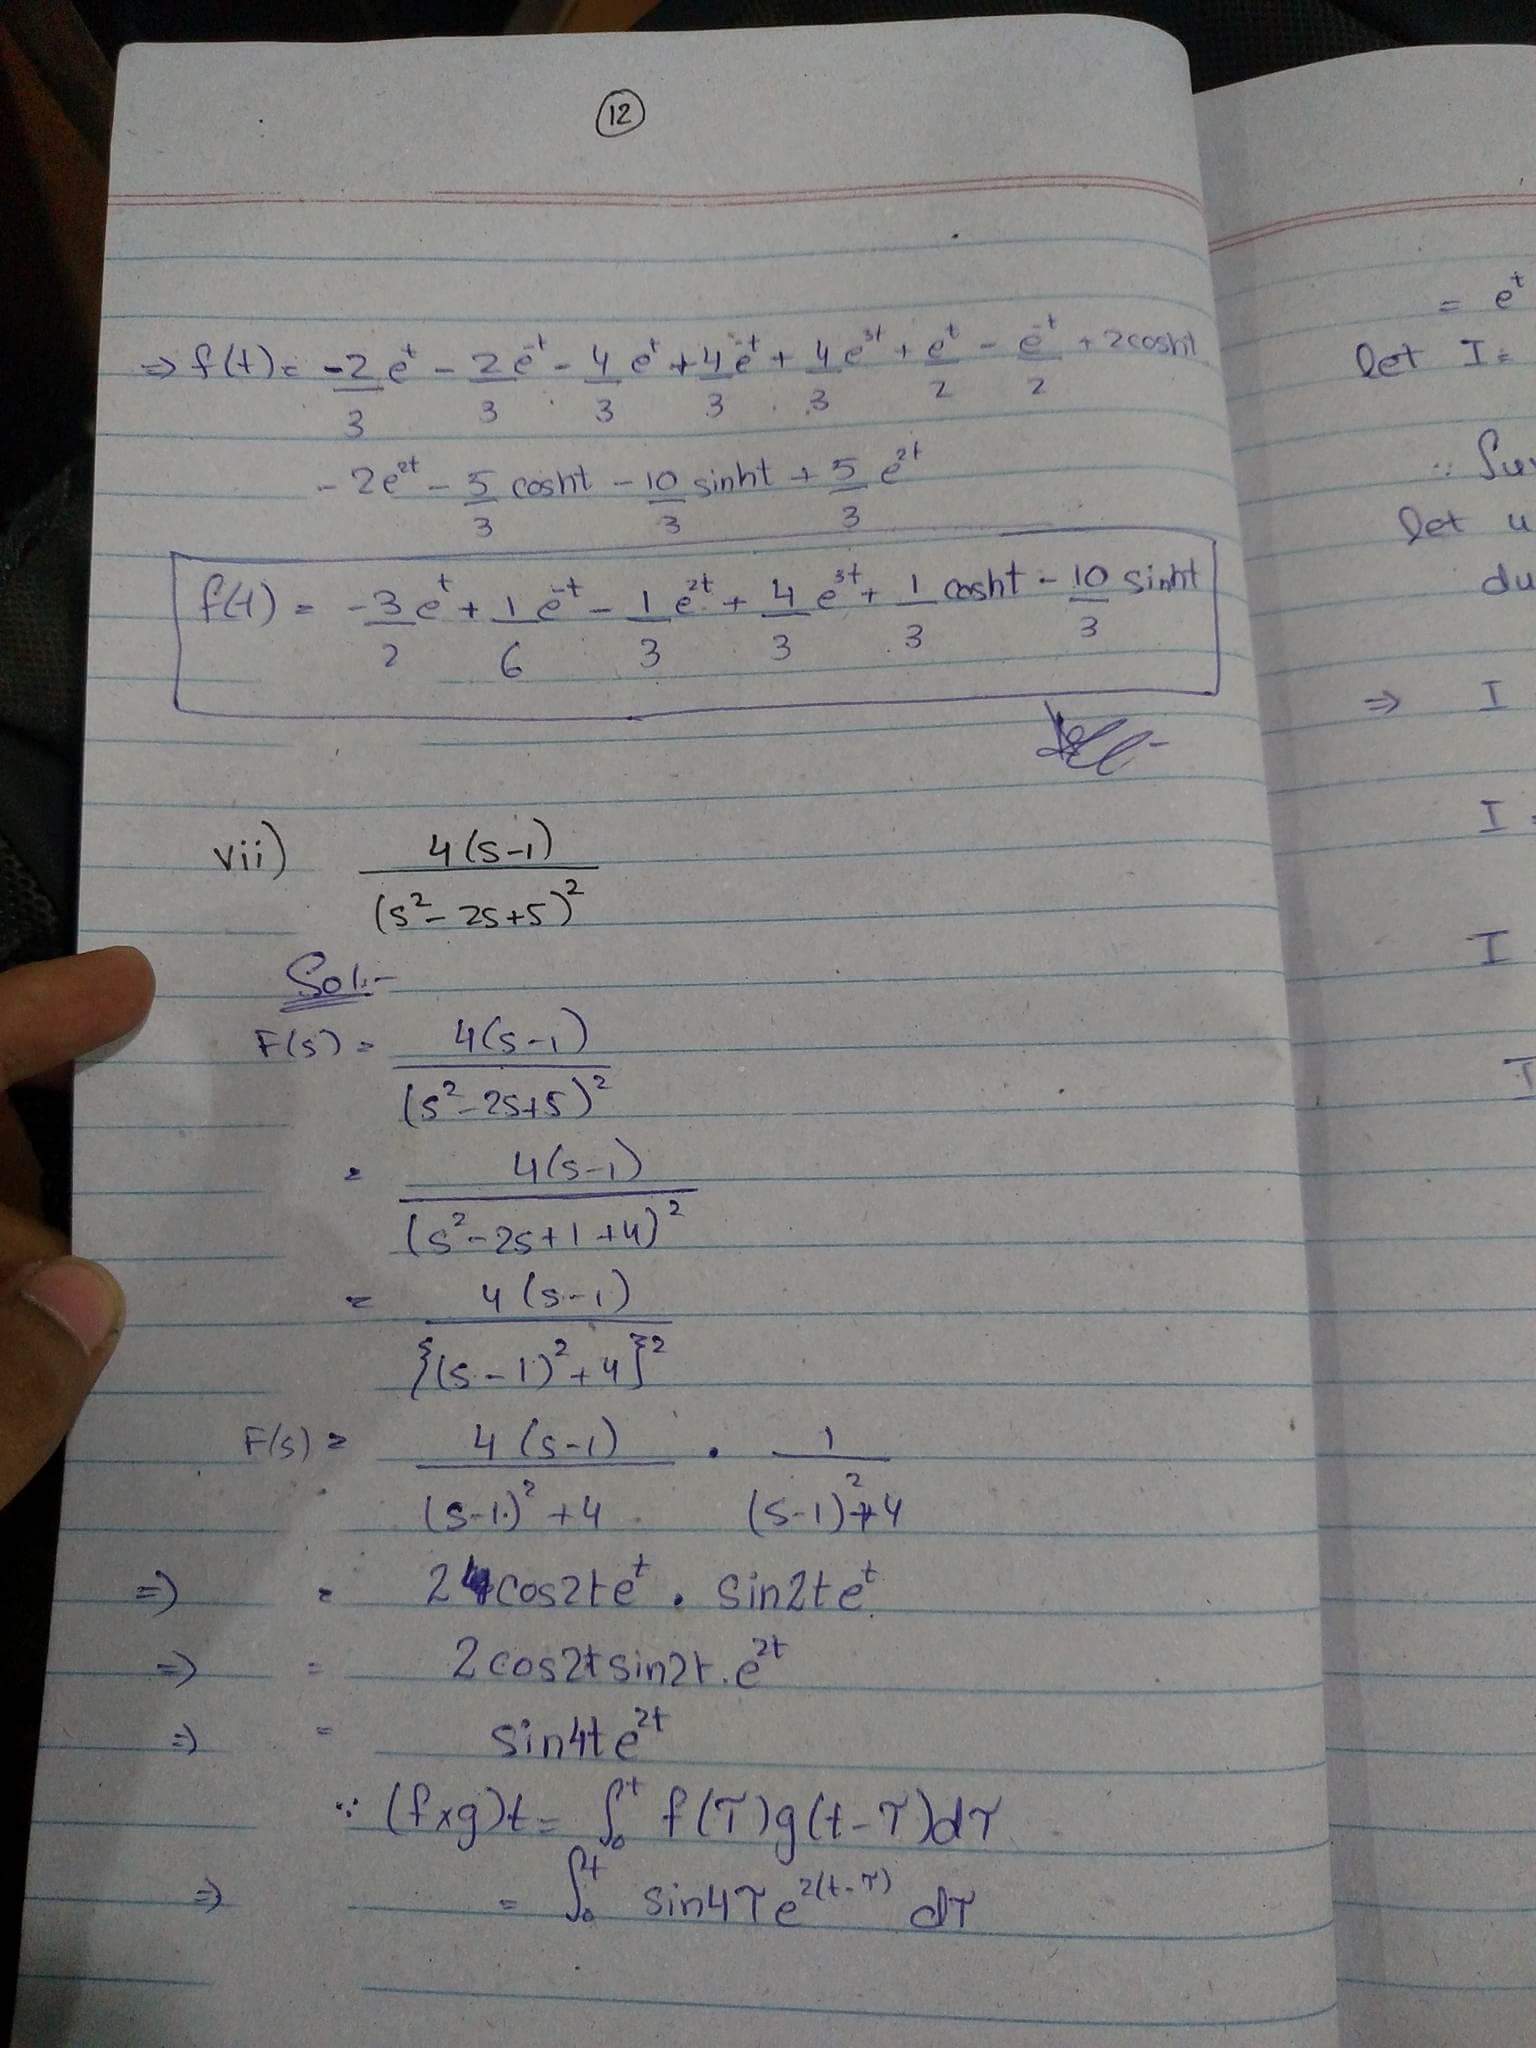 12
⇒ f(t) = -2/3 e^t - 2/3 e^-t - 4/3 e^t + 4/3 e^-t + 4/3 e^3t + e^t/2 - e^-t/2 + 2cosht
- 2e^2t - 5/3 cosht - 10/3 sinht + 5/3 e^2t
f(t) = -3/2 e^t + 1/6 e^-t - 1/3 e^2t + 4/3 e^3t + 1/3 cosht - 10/3 sinht
vii) 4(s-1) / (s²-2s+5)²
Sol:-
F(s) = 4(s-1) / (s²-2s+5)²
= 4(s-1) / (s²-2s+1+4)²
= 4(s-1) / {(s-1)²+4}²
F(s) = 4(s-1) / (s-1)²+4 . 1 / (s-1)²+4
⇒ = 2 cos2te^t . sin2te^t
⇒ = 2cos2tsin2t.e^2t
⇒ = sin4te^2t
∵ (f×g)t = ∫₀^t f(τ)g(t-τ)dτ
⇒ = ∫₀^t sin4τe^2(t-τ) dτ
= e^t
let I =
∵ 
let u
du
⇒ I
I =
I
I